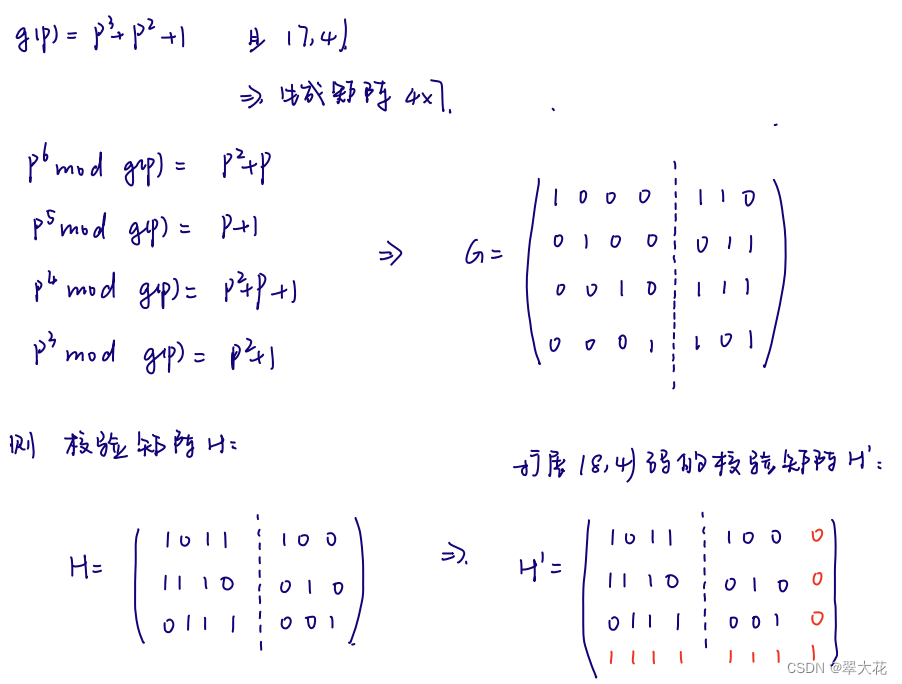 g(p) = p³+p²+1 且 (7,4)
⇒ 生成矩阵 4×7.
p⁶ mod g(p) = p²+p
p⁵ mod g(p) = p+1
p⁴ mod g(p) = p²+p+1
p³ mod g(p) = p²+1
⇒ G =
1 0 0 0 1 1 0
0 1 0 0 0 1 1
0 0 1 0 1 1 1
0 0 0 1 1 0 1
则 校验矩阵 H:
H =
1 0 1 1 1 0 0
1 1 1 0 0 1 0
0 1 1 1 0 0 1
扩展 (8,4) 码的校验矩阵 H':
⇒ H' =
1 0 1 1 1 0 0 0
1 1 1 0 0 1 0 0
0 1 1 1 0 0 1 0
1 1 1 1 1 1 1 1
CSDN @翠大花